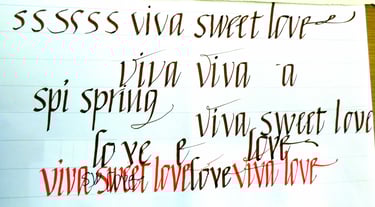 s s s s s s viva sweet love
viva viva a
spi spring
viva sweet love
love e love
viva sweet love love viva love